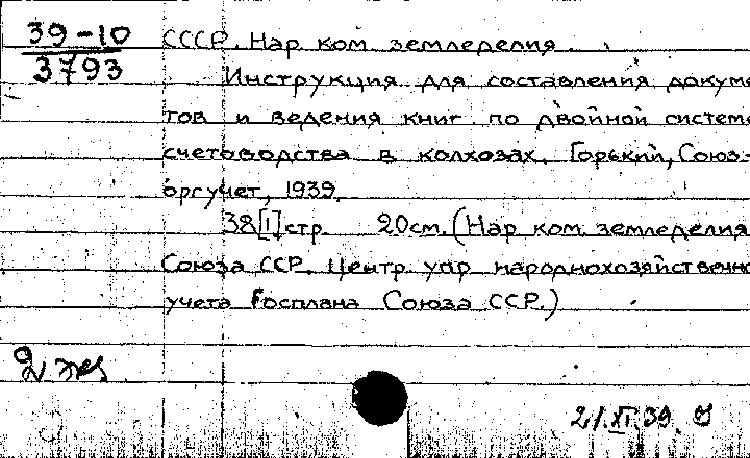 39-10
3793
СССР. Нар ком земледелия.
Инструкция для составления докуме
тов и ведения книг по двойной систем
счетоводства в колхозах. Горький, Союз-
оргучет, 1939.
38[1]стр. 20см. (Нар ком. земледелия
Союза ССР. Центр. упр народнохозяйственно
учета Госплана Союза ССР.)
2 экз
21.XI.39.